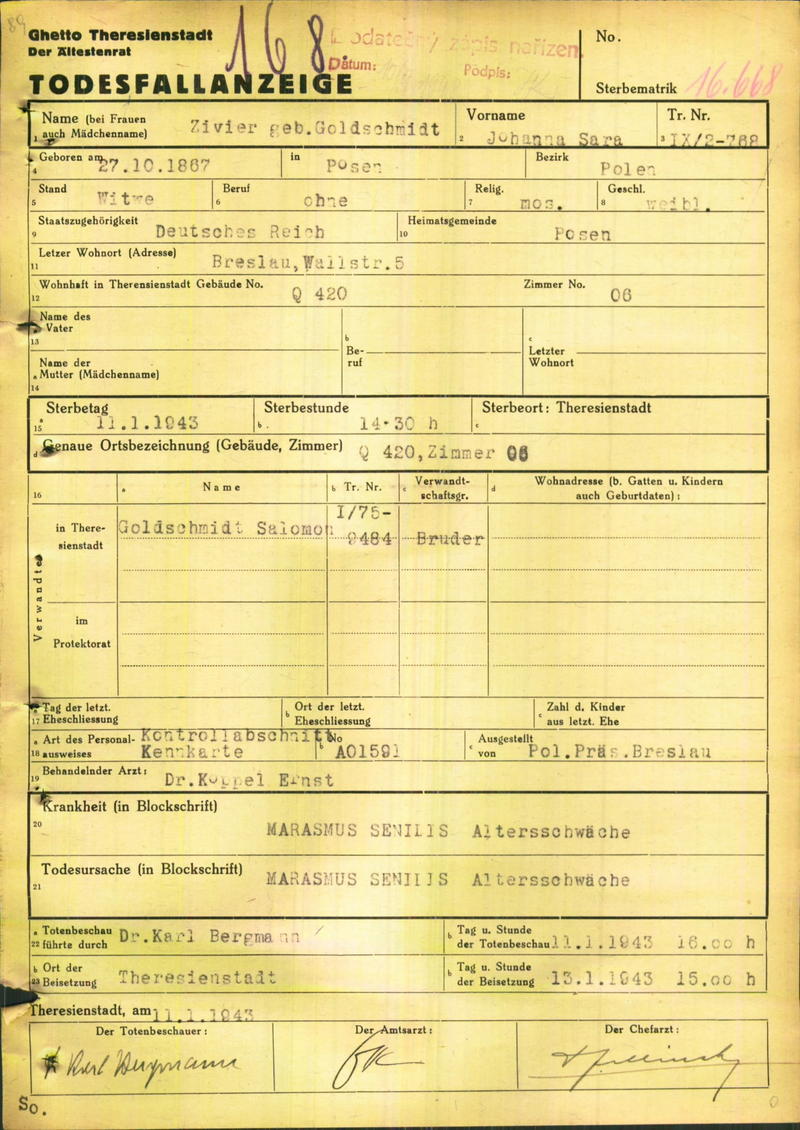 89
Ghetto Theresienstadt
Der Ältestenrat
TODESFALLANZEIGE
168
Dodatečný zápis nařízen
Dátum:
Podpis:
No.
Sterbematrik 16.668
Name (bei Frauen auch Mädchenname) Zivier geb.Goldschmidt
1
Vorname
2 Johanna Sara
Tr. Nr.
3 IX/2-768
Geboren am 27.10.1867
4
in Posen
Bezirk Polen
Stand
5 Witwe
Beruf
6 ohne
Relig.
7 mos.
Geschl.
8 weibl.
Staatszugehörigkeit
9 Deutsches Reich
Heimatsgemeinde
10 Posen
Letzer Wohnort (Adresse)
11 Breslau,Wallstr.5
Wohnhaft in Therensienstadt Gebäude No.
12 Q 420
Zimmer No. 06
Name des
Vater
13
b
Be-
ruf
c
Letzter
Wohnort
Name der
a Mutter (Mädchenname)
14
Sterbetag
15 11.1.1943
Sterbestunde
b. 14.30 h
Sterbeort: Theresienstadt
c
d Genaue Ortsbezeichnung (Gebäude, Zimmer) Q 420,Zimmer 06
16
a Name
b Tr. Nr.
c Verwandt-
schaftsgr.
d Wohnadresse (b. Gatten u. Kindern
auch Geburtdaten):
Verwandte
in There-
sienstadt
Goldschmidt Salomon
I/75-
9484
Bruder
im
Protektorat
Tag der letzt.
17 Eheschliessung
b Ort der letzt.
Eheschliessung
c Zahl d. Kinder
aus letzt. Ehe
a Art des Personal-
18 ausweises
Kontrollabschnitt
Kennkarte
b No A01591
c Ausgestellt
von Pol.Präs.Breslau
Behandelnder Arzt:
19 Dr.Koppel Ernst
Krankheit (in Blockschrift)
20 MARASMUS SENILIS Altersschwäche
Todesursache (in Blockschrift)
21 MARASMUS SENILIS Altersschwäche
a Totenbeschau
22 führte durch Dr.Karl Bergmann
b Tag u. Stunde
der Totenbeschau 11.1.1943 16.00 h
b Ort der
23 Beisetzung Theresienstadt
b Tag u. Stunde
der Beisetzung 13.1.1943 15.00 h
Theresienstadt, am 11.1.1943
Der Totenbeschauer:
Der Amtsarzt:
Der Chefarzt:
Karl Bergmann
So.